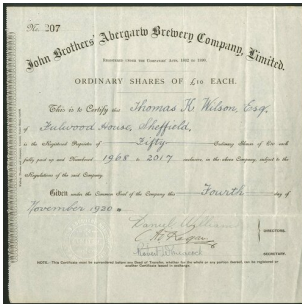 No. 207
John Brothers' Abergarw Brewery Company, Limited.
REGISTERED UNDER THE COMPANIES' ACTS, 1862 TO 1890.
ORDINARY SHARES OF £10 EACH.
This is to Certify that Thomas H. Wilson, Esq.
of Fulwood House, Sheffield,
is the Registered Proprietor of Fifty Ordinary Shares of £10 each
fully paid up and Numbered 1968 to 2017 inclusive, in the above Company, subject to the
Regulations of the said Company.
Given under the Common Seal of the Company this Fourth day of
November 1920
Daniel
DIRECTORS.
SECRETARY.
NOTE.—This Certificate must be surrendered before any Deed of Transfer, whether for the whole or any portion thereof, can be registered or
another Certificate issued in exchange.